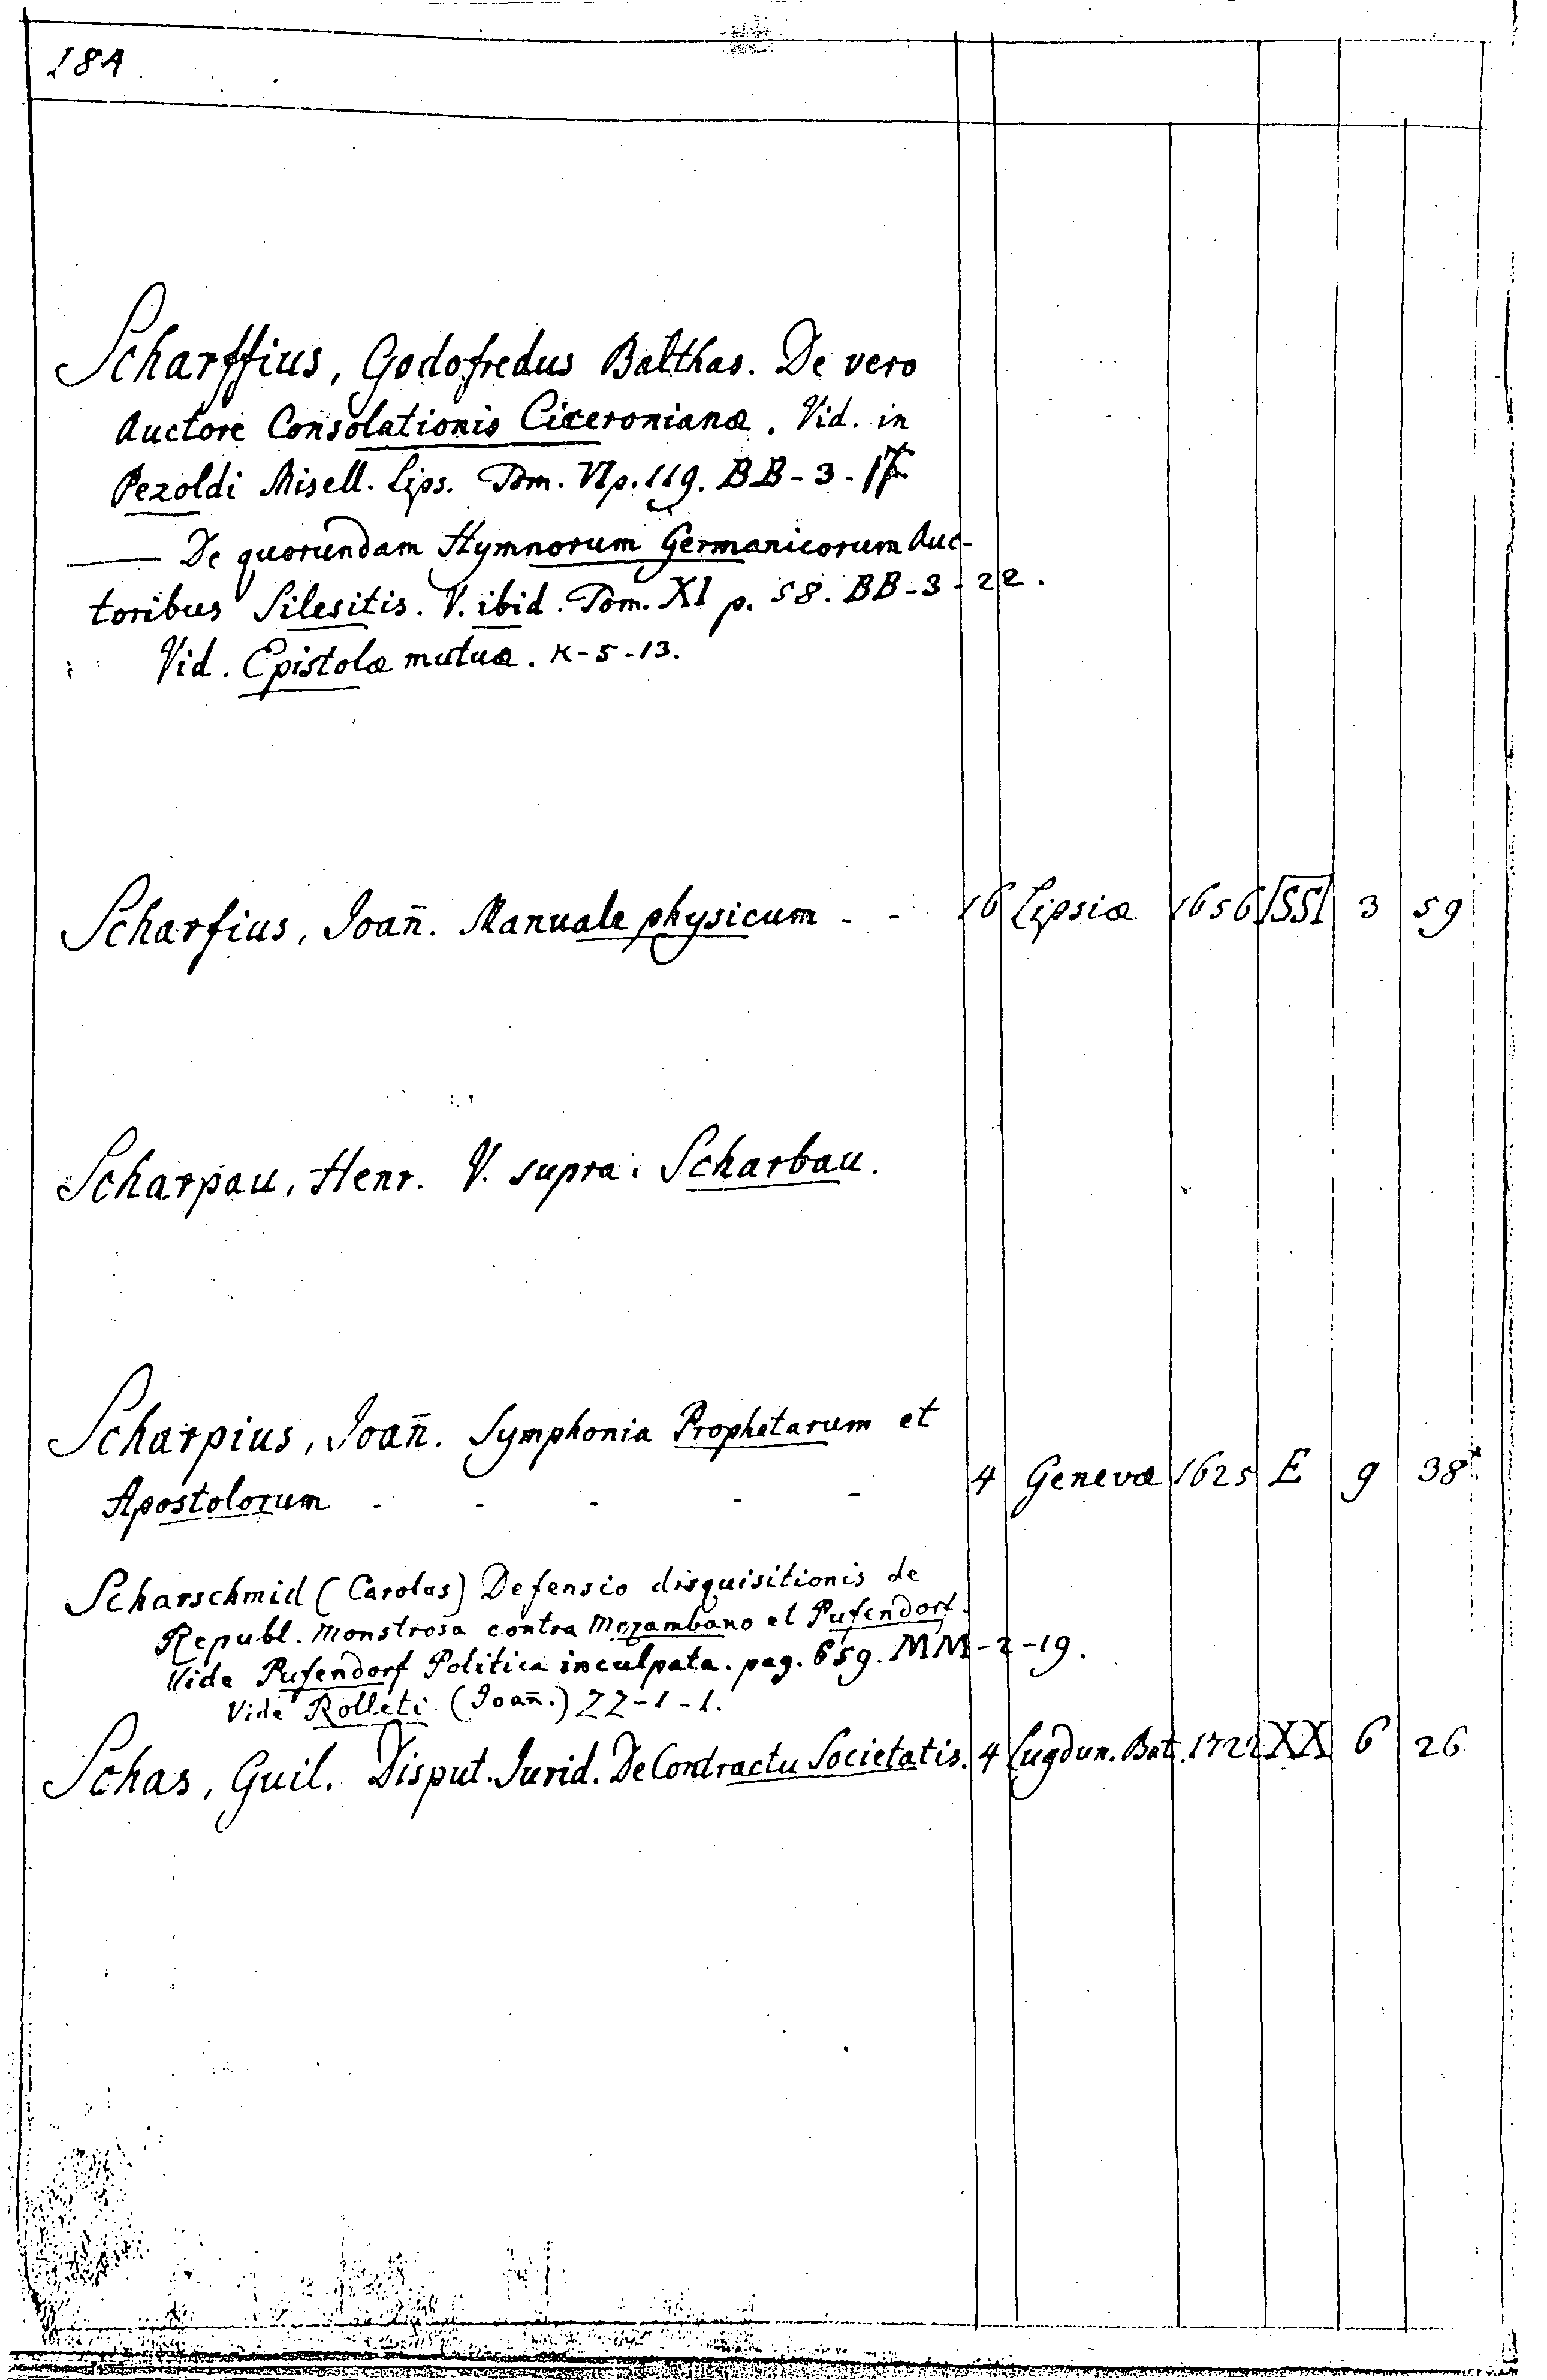 184.
Scharffius, Godofredus Balthas. De vero
Auctore Consolationis Ciceronianæ. Vid. in
Pezoldi Misell. Lips. Tom. VI p. 119. BB-3-17.
— De quorundam Hymnorum Germanicorum Auc-
toribus Silesitis. V. ibid. Tom. XI p. 58. BB-3-22.
Vid. Epistolæ mutuæ. K-5-13.
Scharfius, Joan̄. Manuale physicum - - 16 Lipsiæ 1656 SS 3 59
Scharpau, Henr. V. supra: Scharbau.
Scharpius, Joan̄. Symphonia Prophetarum et
Apostolorum - - - - - 4 Genevæ 1625 E 9 38
Scharschmid (Carolus) Defensio disquisitionis de
Republ. Monstrosa contra Mozambano et Pufendorf.
Vide Pufendorf Politica inculpata. pag. 659. MM-2-19.
Vide Rolleti (Joan̄.) ZZ-1-1.
Schas, Guil. Disput. Jurid. De Contractu Societatis. 4 Lugdun. Bat. 1722 XX 6 26